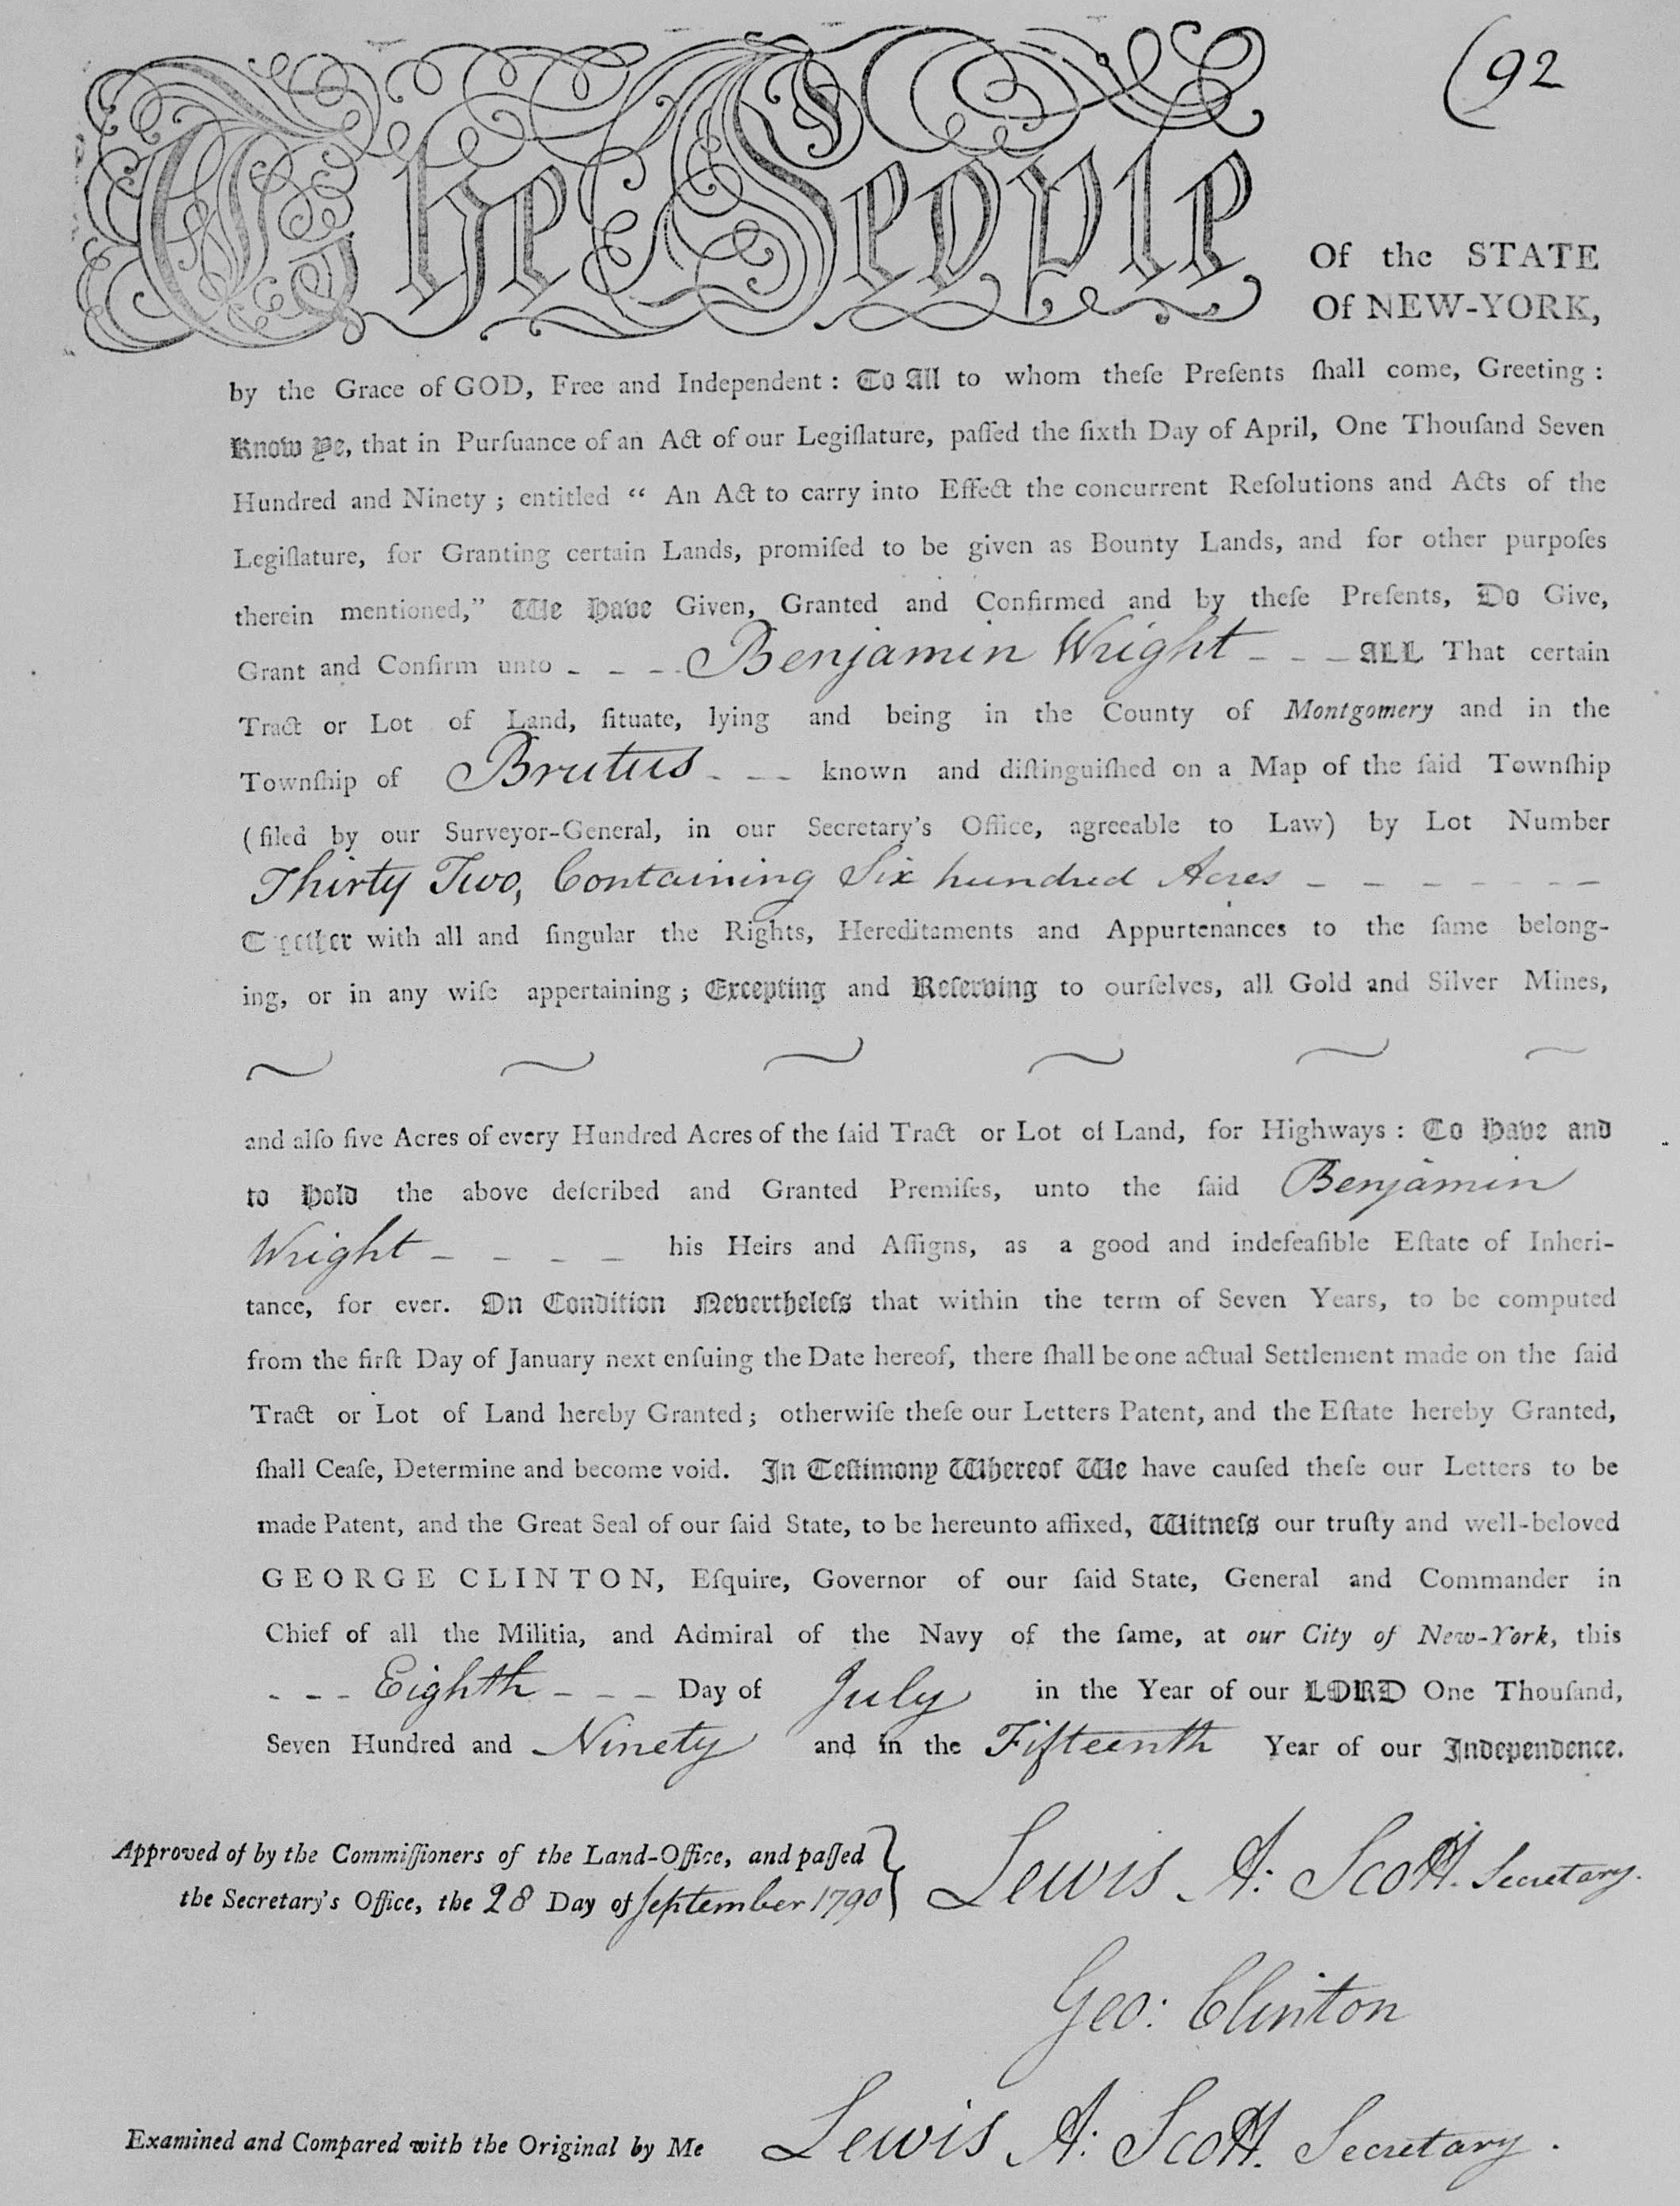 (92
The People
Of the STATE
Of NEW-YORK,
by the Grace of GOD, Free and Independent : To All to whom theſe Preſents ſhall come, Greeting :
Know Ye, that in Purſuance of an Act of our Legiſlature, paſſed the ſixth Day of April, One Thouſand Seven
Hundred and Ninety ; entitled “ An Act to carry into Effect the concurrent Reſolutions and Acts of the
Legiſlature, for Granting certain Lands, promiſed to be given as Bounty Lands, and for other purpoſes
therein mentioned,” We Have Given, Granted and Confirmed and by theſe Preſents, Do Give,
Grant and Confirm unto - - - - Benjamin Wright - - - ALL That certain
Tract or Lot of Land, ſituate, lying and being in the County of Montgomery and in the
Townſhip of Brutus - - - known and diſtinguiſhed on a Map of the ſaid Townſhip
(filed by our Surveyor-General, in our Secretary's Office, agreeable to Law) by Lot Number
Thirty Two, Containing Six hundred Acres - - - - - - - -
Together with all and ſingular the Rights, Hereditaments and Appurtenances to the ſame belong-
ing, or in any wiſe appertaining ; Excepting and Reſerving to ourſelves, all Gold and Silver Mines,
and alſo five Acres of every Hundred Acres of the ſaid Tract or Lot of Land, for Highways : To Have and
to Hold the above deſcribed and Granted Premiſes, unto the ſaid Benjamin
Wright - - - - his Heirs and Aſſigns, as a good and indefeaſible Eſtate of Inheri-
tance, for ever. On Condition Nevertheleſs that within the term of Seven Years, to be computed
from the firſt Day of January next enſuing the Date hereof, there ſhall be one actual Settlement made on the ſaid
Tract or Lot of Land hereby Granted ; otherwiſe theſe our Letters Patent, and the Eſtate hereby Granted,
ſhall Ceaſe, Determine and become void. In Teſtimony Whereof We have cauſed theſe our Letters to be
made Patent, and the Great Seal of our ſaid State, to be hereunto affixed, Witneſs our truſty and well-beloved
GEORGE CLINTON, Eſquire, Governor of our ſaid State, General and Commander in
Chief of all the Militia, and Admiral of the Navy of the ſame, at our City of New-York, this
- - - Eighth - - - Day of July in the Year of our LORD One Thouſand,
Seven Hundred and Ninety and in the Fifteenth Year of our Independence.
Approved of by the Commiſſioners of the Land-Office, and paſſed
the Secretary's Office, the 28 Day of September 1790
Lewis A: Scott. Secretary.
Geo: Clinton
Examined and Compared with the Original by Me Lewis A: Scott. Secretary.